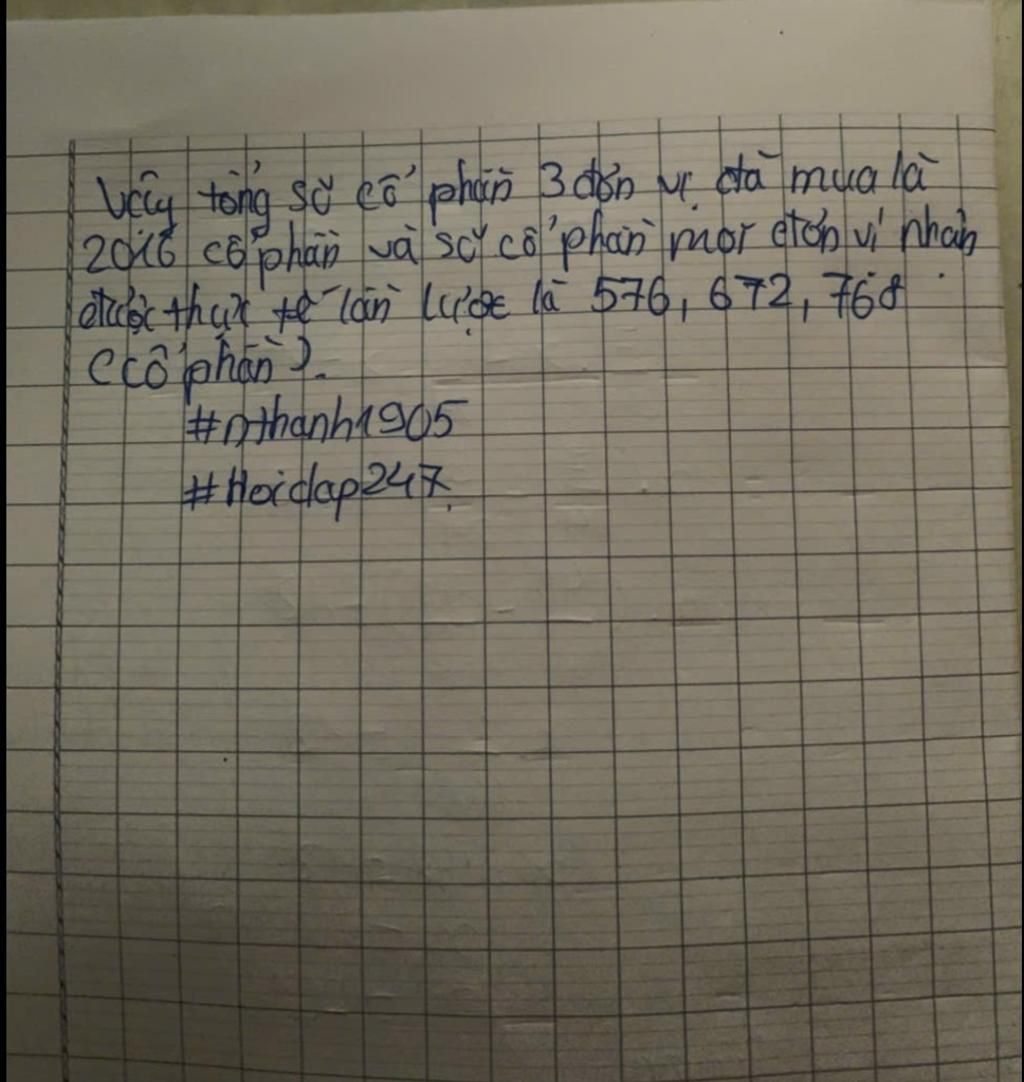 Vậy tổng số cổ phần 3 đơn vị đã mua là
2016 cổ phần và số cổ phần mỗi đơn vị nhận
được thực tế lần lượt là 576, 672, 768
(cổ phần).
#nthanh1905
#Hoidap247.